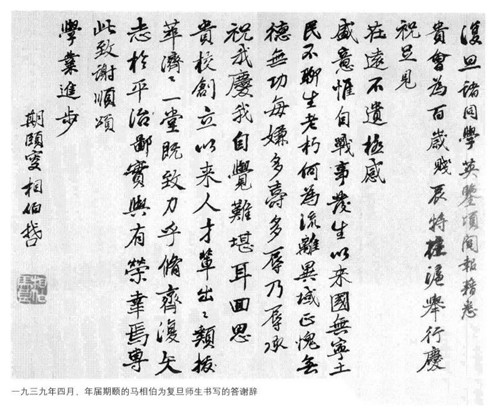 復旦諸同學英鑒頃閱報藉悉
貴會為百歲賤辰特在滬舉行慶
祝足見
在遠不遺極感
盛意惟自戰事發生以來國無寧土
民不聊生老朽何為流離異域正愧無
德無功每嫌多壽多辱乃辱承
祝我慶我自覺難堪耳回思
貴校創立以來人才輩出〻類拔
萃濟〻一堂既致力乎脩齊復矢
志於平治鄙實與有榮幸焉專
此致謝順頌
學業進步
期頤叟相伯
一九三九年四月，年届期颐的马相伯为复旦师生书写的答谢辞